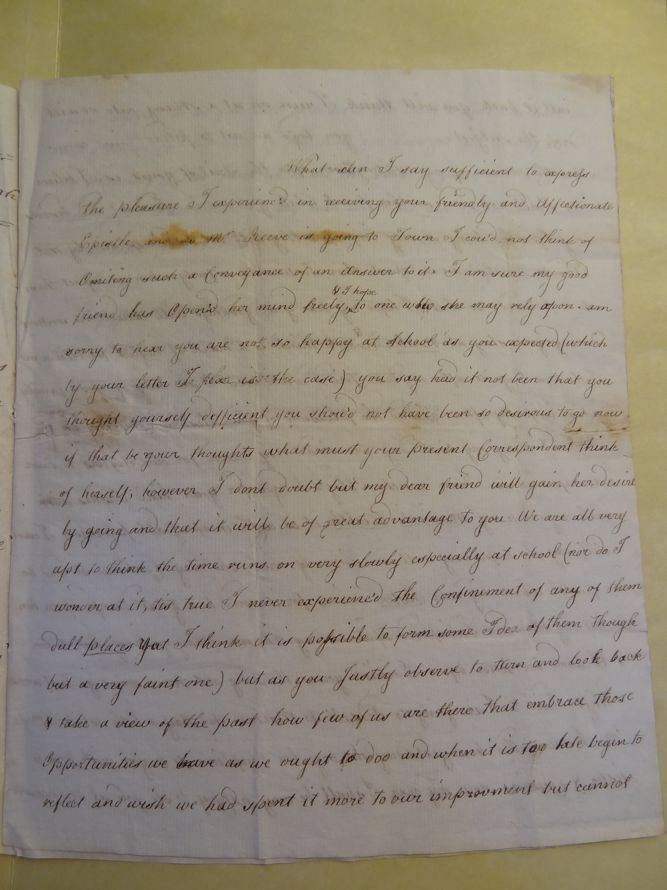 What can I say sufficient to express
the pleasure I experienc'd in receiving your friendly and Affectionate
Epistle, and as Mr Reeve is going to Town I cou'd not think of
Omiting such a Conveyance of an Answer to it. I am sure my good
& I hope
friend has Open'd her mind freely, to one who she may rely upon. am
sorry to hear you are not so happy at School as you expected (which
by your letter I fear is the case) you say had it not been that you
thought yourself defficient you shou'd not have been so desirous to go now
if that be your thoughts what must your present Correspondent think
of herself, however I dont doubt but my dear friend will gain her desire
by going and that it will be of great advantage to you We are all very
apt to think the time runs on very slowly especially at school (nor do I
wonder at it, tis true I never experienc'd the Confinement of any of them
dull places yat I think it is possible to form some Idea of them though
but a very faint one) but as you Justly observe to turn and look back
& take a view of the past how few of us are there that embrace those
Opportunities we have as we ought to doo and when it is too late begin to
reflect and wish we had spent it more to our improvment but cannot